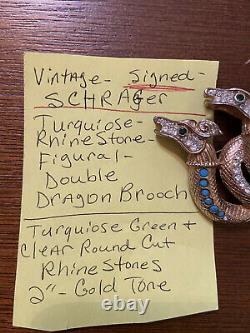 Vintage- Signed-
SCHRAGer
Turquoise-
RhineStone-
Figural-
Double
Dragon Brooch
Turquiose Green +
clear Round Cut
RhineStones
2"- Gold Tone